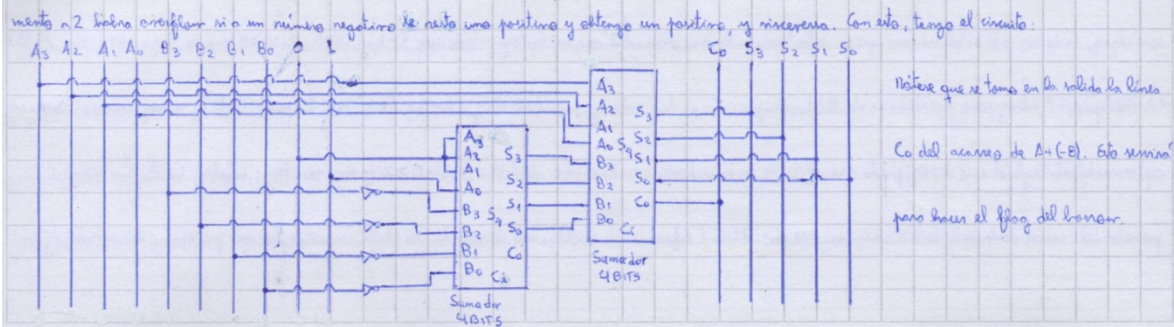 mento a 2 habrá overflow si a un número negativo le resto uno positivo y obtengo un positivo, y viceversa. Con esto, tengo el circuito:
A3 A2 A1 A0 B3 B2 B1 B0 0 1
C0 S3 S2 S1 S0
A3
A2
A1
A0
B3
B2
B1
B0
S3
S2
S1
S0
C0
Ci
Sumador
4 BITS
A3
A2
A1
A0
B3
B2
B1
B0
S3
S2
S1
S0
C0
Ci
Sumador
4 BITS
Nótese que se toma en la salida la línea
C0 del acarreo de A+(-B). Esto servirá
para hacer el flag del borrow.